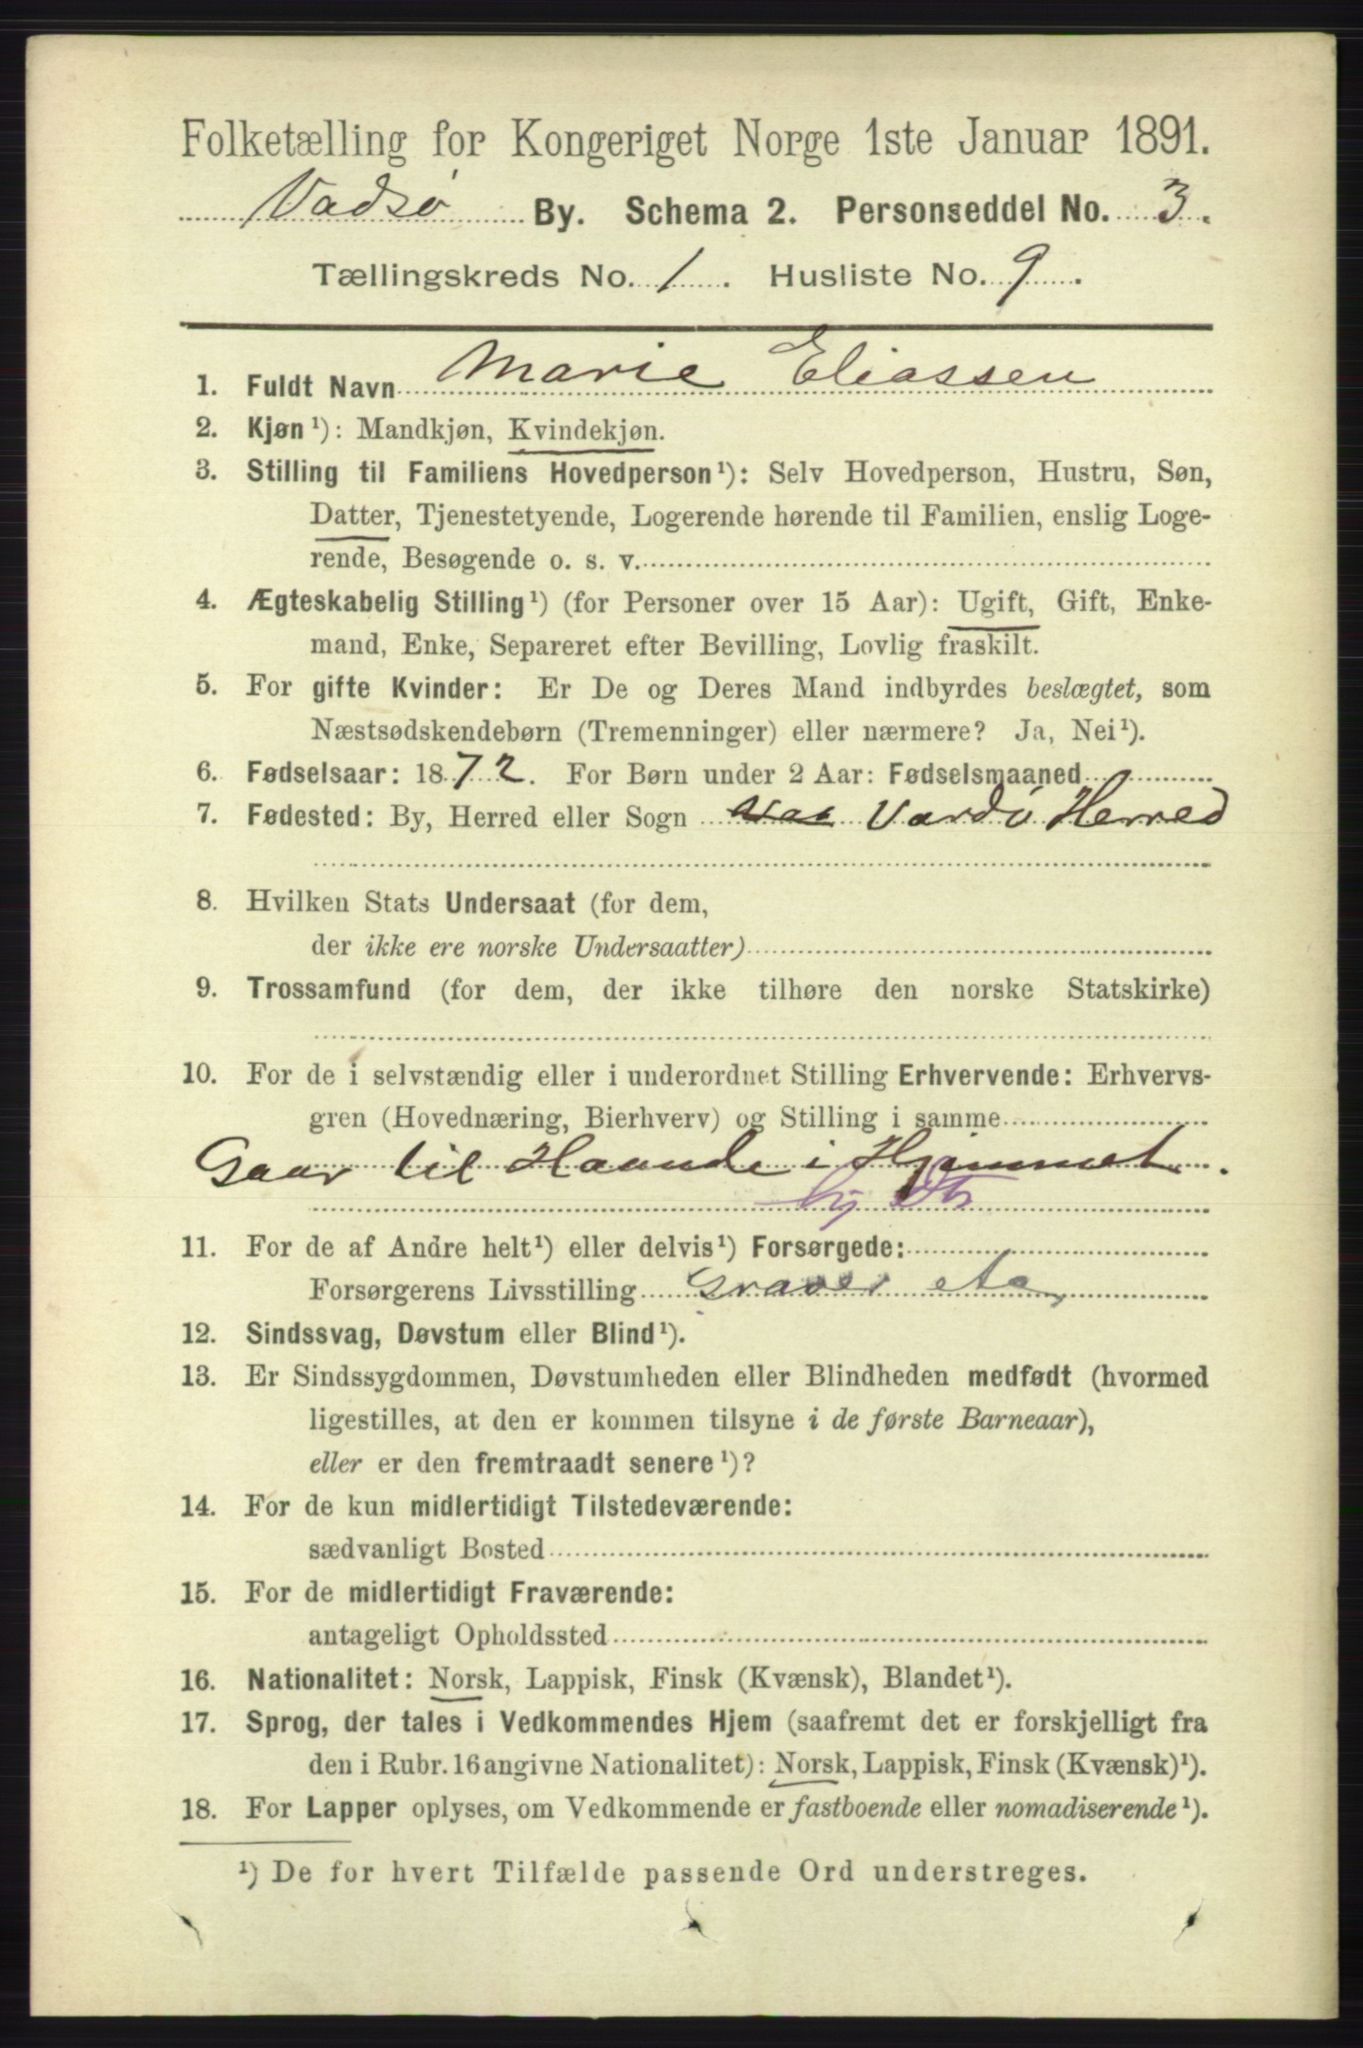 Folketælling for Kongeriget Norge 1ste Januar 1891.
Vadsø By. Schema 2. Personseddel No. 3.
Tællingskreds No. 1. Husliste No. 9.
1. Fuldt Navn Marie Eliassen
2. Kjøn¹): Mandkjøn, Kvindekjøn.
3. Stilling til Familiens Hovedperson¹): Selv Hovedperson, Hustru, Søn,
Datter, Tjenestetyende, Logerende hørende til Familien, enslig Loge-
rende, Besøgende o. s. v.
4. Ægteskabelig Stilling¹) (for Personer over 15 Aar): Ugift, Gift, Enke-
mand, Enke, Separeret efter Bevilling, Lovlig fraskilt.
5. For gifte Kvinder: Er De og Deres Mand indbyrdes beslægtet, som
Næstsødskendebørn (Tremenninger) eller nærmere? Ja, Nei¹).
6. Fødselsaar: 1872. For Børn under 2 Aar: Fødselsmaaned
7. Fødested: By, Herred eller Sogn Vardø Herred
8. Hvilken Stats Undersaat (for dem,
der ikke ere norske Undersaatter)
9. Trossamfund (for dem, der ikke tilhøre den norske Statskirke)
10. For de i selvstændig eller i underordnet Stilling Erhvervende: Erhvervs-
gren (Hovednæring, Bierhverv) og Stilling i samme
Gaar til Haande i Hjemmet.
11. For de af Andre helt¹) eller delvis¹) Forsørgede:
Forsørgerens Livsstilling Graver
12. Sindssvag, Døvstum eller Blind¹).
13. Er Sindssygdommen, Døvstumheden eller Blindheden medfødt (hvormed
ligestilles, at den er kommen tilsyne i de første Barneaar),
eller er den fremtraadt senere¹)?
14. For de kun midlertidigt Tilstedeværende:
sædvanligt Bosted
15. For de midlertidigt Fraværende:
antageligt Opholdssted
16. Nationalitet: Norsk, Lappisk, Finsk (Kvænsk), Blandet¹).
17. Sprog, der tales i Vedkommendes Hjem (saafremt det er forskjelligt fra
den i Rubr. 16 angivne Nationalitet): Norsk, Lappisk, Finsk (Kvænsk)¹).
18. For Lapper oplyses, om Vedkommende er fastboende eller nomadiserende¹).
¹) De for hvert Tilfælde passende Ord understreges.